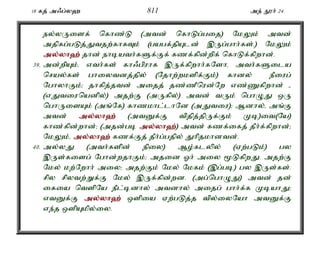 18 கத் அஃப்லஹ 811 அந் நூர் 24
நல்லருளைக் கொண்டு (அவன் கொடுப்பதை) மேலும் அவன்
அதிகப்படுத்துவதற்காகவும் (பயபக்தியுடன் இருப்பார்கள்;) மேலும்
அல்லாஹ் தான் நாடியவர்களுக்குக் கணக்கின்றிக் கொடுக்கிறான்.
39. அன்றியும், எவர்கள் காஃபிராக இருக்கிறார்களோ, அவர்களுடைய
செயல்கள் பாலைவனத்தில் (தோற்றமளிக்கும்) கானல் நீரைப்
போலாகும்; தாகித்தவன் அதைத் தண்ணீரென்றே எண்ணுகிறான் -
(எதுவரையெனில்) அதற்கு (அருகில்) அவன் வரும் பொழுது ஒரு
பொருளையும் (அங்கே) காணமாட்டானே (அதுவரை); ஆனால், அங்கு
அவன் அல்லாஹ் (அவனுக்கு விதித்திருக்கும் முடி)வை(யே)
காண்கின்றான்; (அதன்படி அல்லாஹ்) அவன் கணக்கைத் தீர்க்கிறான்;
மேலும், அல்லாஹ் கணக்குத் தீர்ப்பதில் துரிதமானவன்.
40. அல்லது (அவர்களின் நிலை) ஆழ்கடலில் (ஏற்படும்) பல
இருள்களைப் போன்றதாகும்; அதனை ஓர் அலை மூடுகிறது. அதற்கு
மேல் மற்றோர் அலை; அதற்கும் மேல் மேகம் (இப்படி) பல இருள்கள்.
சில சிலவற்றுக்கு மேல் இருக்கின்றன. (அப்பொழுது) அவன் தன்
கையை வெளியே நீட்டினால் அவனால் அதைப் பார்க்க முடியாது;
எவனுக்கு அல்லாஹ் ஒளியை ஏற்படுத்த வில்லையோ அவனுக்கு
எந்த ஒளியுமில்லை.